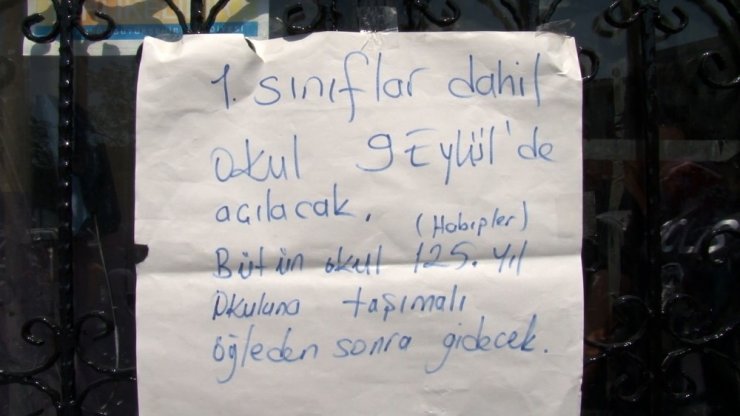 1. sınıflar dahil
okul 9 Eylül'de
açılacak.
(Habipler)
Bütün okul 125. yıl
Okuluna taşımalı
öğleden sonra gidecek.